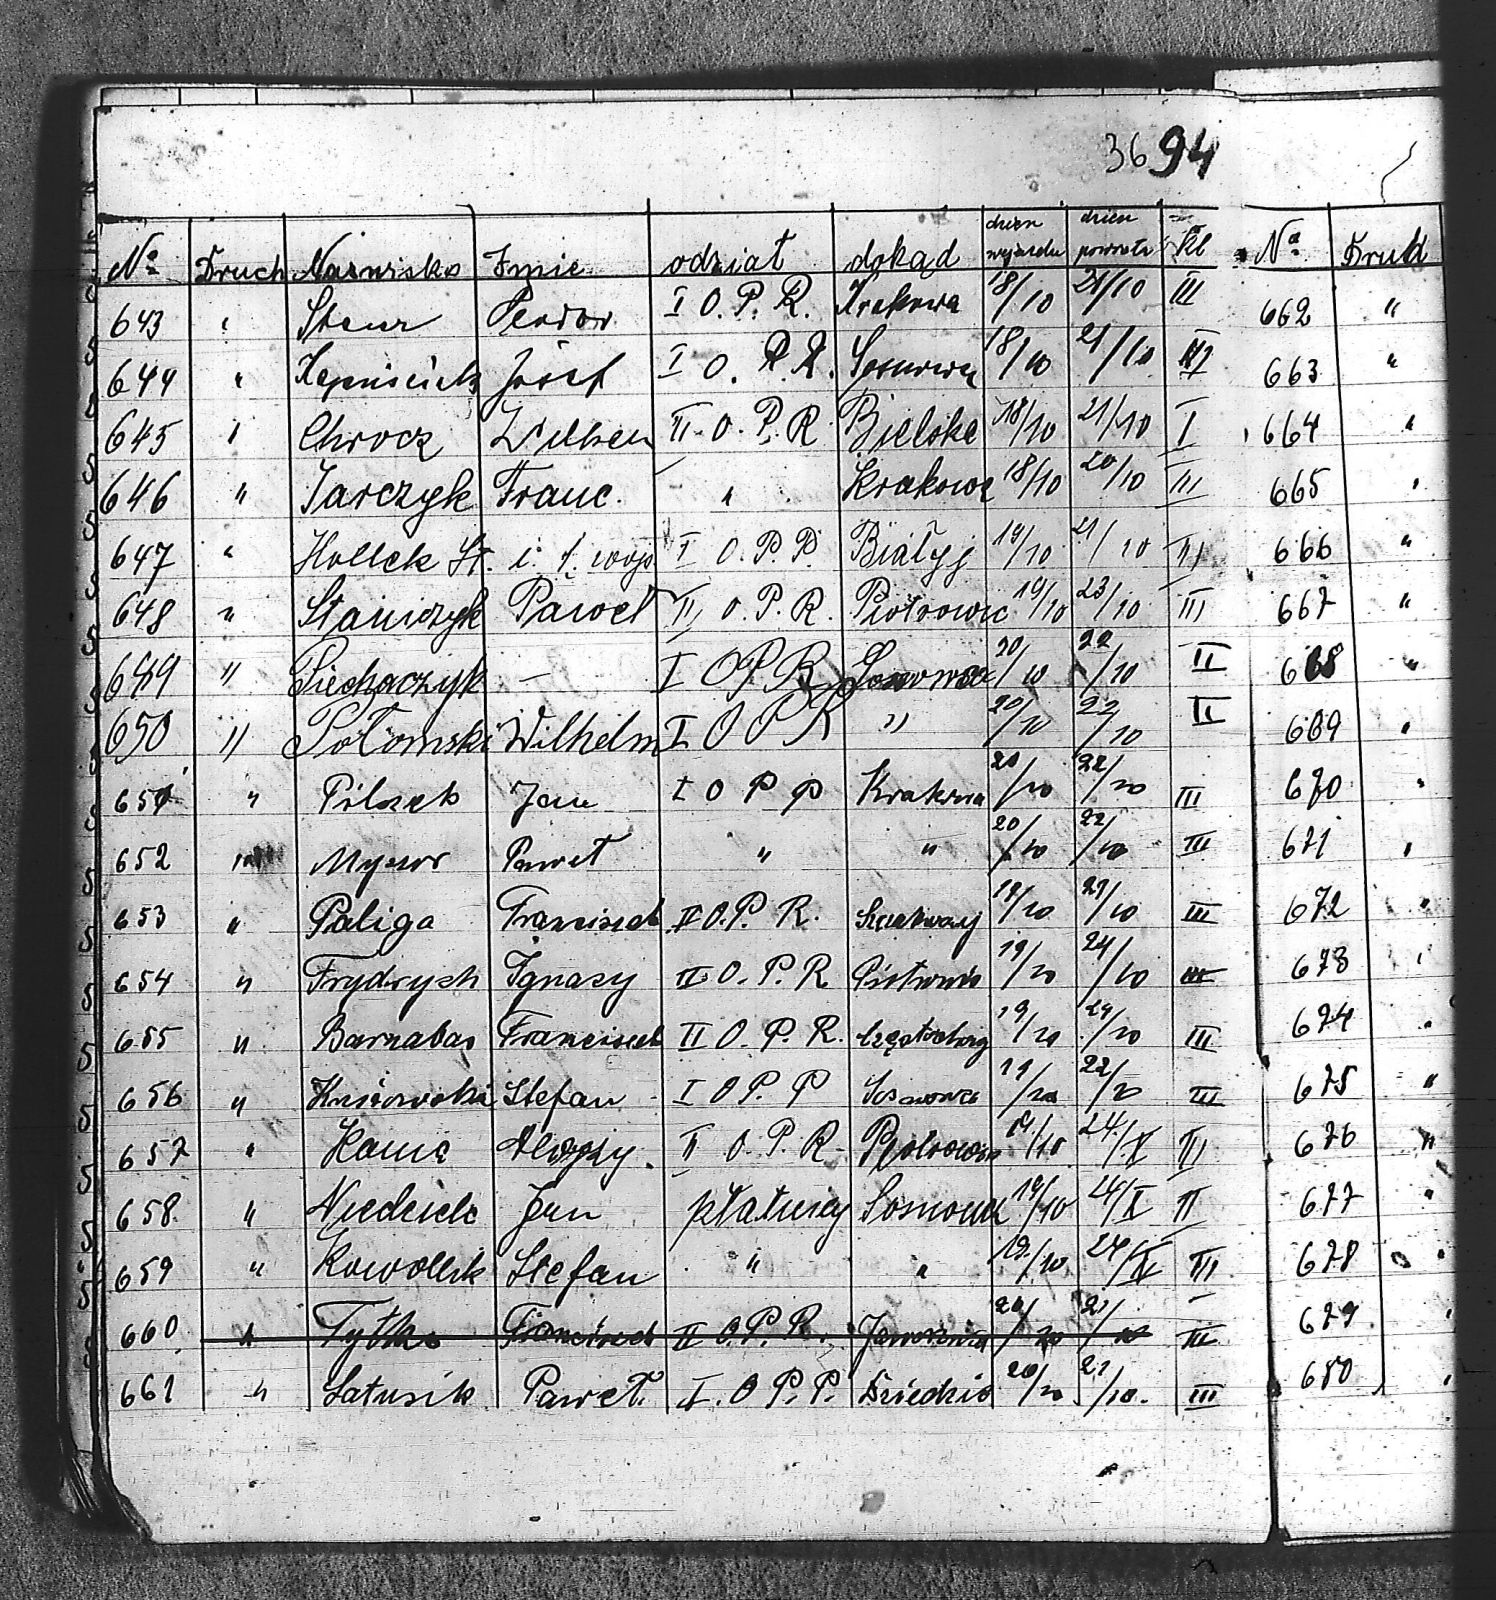 3694
Nº Druch Nazwisko Imie odział dokąd dzień wyjazdu dzień powrotu Kl Nº Druk
643 " Steur Teodor I O. P. R. Krakowa 18/10 21/10 III 662 "
644 " Józef I O. P. R. Sosnowca 18/10 21/10 III 663 "
645 " Chrocz Wilhelm II O. P. R Bielska 18/10 21/10 I 664 "
646 " Jarczyk Franc. " Krakowa 18/10 20/10 III 665 "
647 " Hollek St. i. t. wojs I O. P. P. Białyj 19/10 21/10 III 666 "
648 " Stańczyk Paweł II O. P. R. Piotrowic 19/10 23/10 III 667 "
649 " Piechaczyk — I O P R Sosnowca 20/10 22/10 II 668 "
650 " Potomski Wilhelm I O P R " 20/10 22/10 II 669 "
651 " Pilszek Jan I O P P Krakowa 20/10 22/10 III 670 "
652 " Myzor Paweł " " 20/10 22/10 III 671 "
653 " Paliga Franciszek II O. P. R. 19/10 21/10 III 672 "
654 " Frydrych Ignacy II O. P. R Piotrowic 19/10 24/10 III 673 "
655 " Barnabas Franciszek II O. P. R. Częstochowy 19/10 24/10 III 674 "
656 " Stefan I O P. P Sosnowca 19/10 22/10 III 675 "
657 " Kania Alojzy. II O. P. R. Piotrowic 19/10 24/X III 676 "
658 " Niedziela Jan płatniczy Sosnowca 19/10 24/X II 677 "
659 " Kowollik Stefan " " 19/10 24/X III 678 "
660 " Tytko Franciszek II O. P. R. Jaworzna 20/10 21/10 III 679 "
661 " Latusik Paweł. I. O P. P. Dziedzic 20/10 21/10. III 680 "